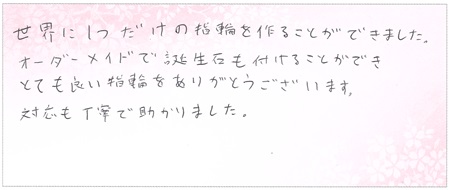 世界に1つだけの指輪を作ることができました。
オーダーメイドで誕生石も付けることができ
とても良い指輪をありがとうございます。
対応も丁寧で助かりました。